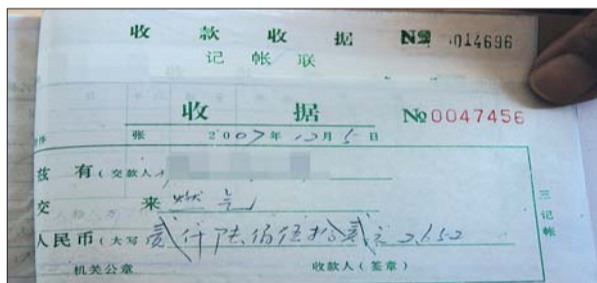 收款收据 № 014696
记帐联
收据 № 0047456
附件 张 2007年12月5日
兹有（交款人）
交来 燃气
人民币（大写 贰仟陆佰伍拾贰元 2652
机关公章 收款人（签章）
三记帐